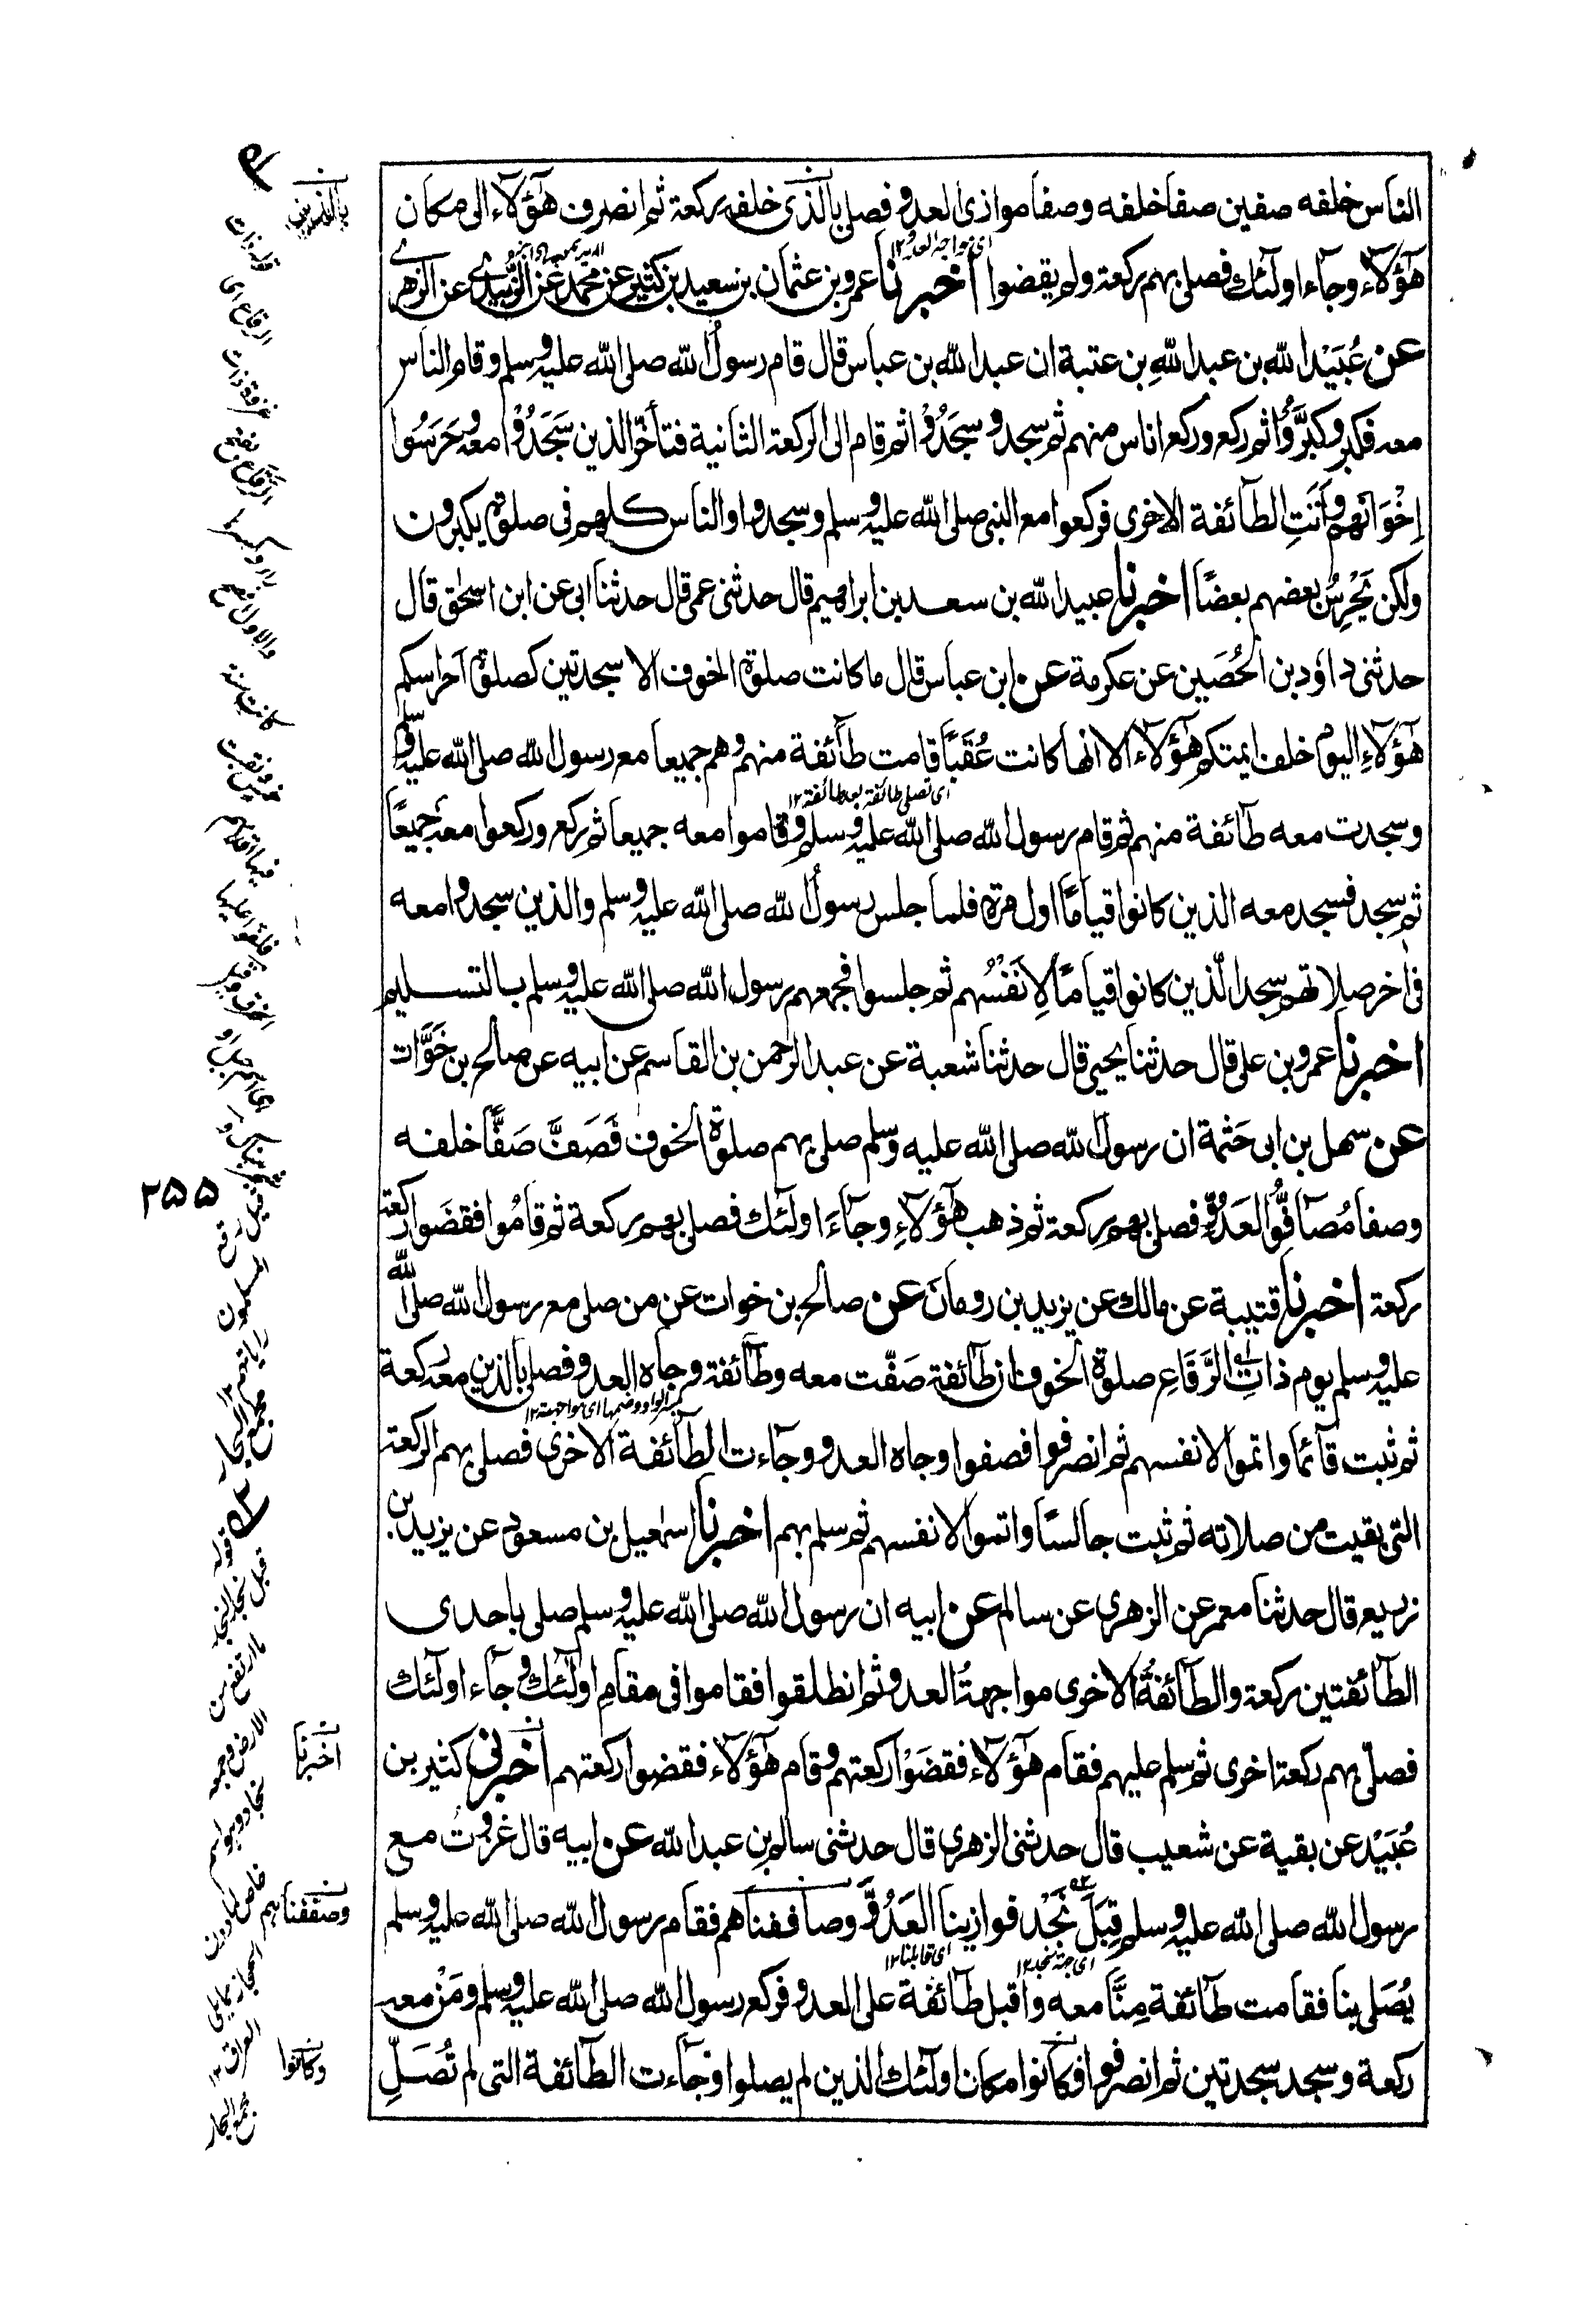 الناس خلفه صفين صفا خلفه وصفا موازى العدو فصلى بالذى خلفه ركعة ثم انصرف هٰؤلاء الى مكان
هٰؤلاء وجاء اولٰئك فصلى بهم ركعة ولم يقضوا اخبرنا عمرو بن عثمان بن سعيد بن كثير عن محمد عن الزبيدي عن الزهري
عن عُبَيْد الله بن عبد اللهِ بن عتبة ان عبد الله بن عباس قال قام رسولُ الله صلى الله عليه وسلم وقام الناس
معه فكبر وكبَّرُوْا ثم ركع وركع اناس منهم ثم سجد وسجَدُوْا ثم قام الى الركعة الثانية فتأخّر الذين سَجَدُوْا معه وحَرَسُوا
اِخْوَانَهم وأتَتِ الطآئفة الاخرى فركعوا مع النبى صلى الله عليه وسلم وسجدوا والناس كلهم فى صلوة يكبرون
ولكن يَحْرِسُ بعضهم بعضًا اخبرنا عبيد الله بن سعد بن ابراهيم قال حدثنى عمى قال حدثنا ابى عن ابن اسحٰق قال
حدثنى داؤد بن الحُصَين عن عكرمة عن ابن عباس قال ما كانت صلوة الخوف الا سجدتين كصلوة احراسكم
هٰؤلاءِ اليوم خلف ايمتكم هٰؤلاء الا انها كانت عُقَبًا قامت طآئفة منهم وهم جميعا مع رسول الله صلى الله عليه وسلم
اى تصلى طائفة بعد طائفة ١٢
وسجدت معه طآئفة منهم ثم قام رسول الله صلى الله عليه وسلم وقاموا معه جميعا ثم ركع وركعوا معه جميعًا
ثم سجد فسجد معه الذين كانوا قيامًا اول مرة فلما جلس رسولُ الله صلى الله عليه وسلم والذين سجدوا معه
فى اخر صلاتهم سجد الّذين كانوا قيامًا لِاَنْفُسِهم ثم جلسوا فجمعهم رسول الله صلى الله عليه وسلم بالتسليم
اخبرنا عمرو بن على قال حدثنا يحيى قال حدثنا شعبة عن عبد الرحمن بن القاسم عن ابيه عن صالح بن خَوَّات
عن سهل بن ابى حَثمة ان رسول الله صلى الله عليه وسلم صلى بهم صلوة الخوف فَصَفَّ صَفًّا خلفه
وصفا مُصَآفُّوا العَدُوِّ فصلى بهم ركعة ثم ذهب هٰؤلاءِ وجآءَ اولٰئك فصلى بهم ركعة ثم قامُوا فقضَوا ركعة
ركعة اخبرنا قتيبة عن مالك عن يزيد بن رومانَ عن صالح بن خوات عن من صلى مع رسول الله صلى الله
عليه وسلم يوم ذاتِ الرَّقَاعِ صلوة الخوف ان طآئفة صَفّت معه وطآئفة وِجاه العدو فصلى بالذين معه ركعة
بكسر الواو وضمها اى مواجهة ١٢
ثم ثبت قآئما واتموا لانفسهم ثم انصرفوا فصفوا وجاه العدو وجآءت الطآئفة الاخرى فصلى بهم الركعة
التى بقيت من صلاته ثم ثبت جالسًا واتموا لانفسهم ثم سلم بهم اخبرنا اسمٰعيل بن مسعود عن يزيد بن
زريع قال حدثنا معمر عن الزهرى عن سالم عن ابيه ان رسول الله صلى الله عليه وسلم صلى باحدى
الطآئفتين ركعة والطآئفةُ الاخرى مواجهةُ العدو ثم انطلقوا فقاموا فى مقامِ اولٰئك وجآء اولٰئك
فصلّى بهم ركعة اخرى ثم سلم عليهم فقام هٰؤلاء فقضَوْا ركعتهم وقام هٰؤلاء فقضوا ركعتهم اخبرنى كثير بن
عُبَيْد عن بقية عن شعيب قال حدثنى الزهرى قال حدثنى سالم بن عبد الله عن ابيه قال غزوتُ مع
رسول الله صلى الله عليه وسلم قِبَلَ نَجْد فوازينا العَدُوَّ وصاففناهم فقام رسول الله صلى الله عليه وسلم
اى جهة نجد ١٢ اى قابلنا ١٢
يُصَلى بنا فقامت طآئفة مِنَّا معه واقبل طآئفة على العدو فركع رسول الله صلى الله عليه وسلم ومَنْ معه
ركعة وسجد سجدتين ثم انصرفوا فكانوا مكان اولٰئك الذين لم يصلوا وجآءت الطآئفة التى لم تُصَلِّ
بالذين
٢٥٥
اخبرنا
وصففناهم
وكانوا